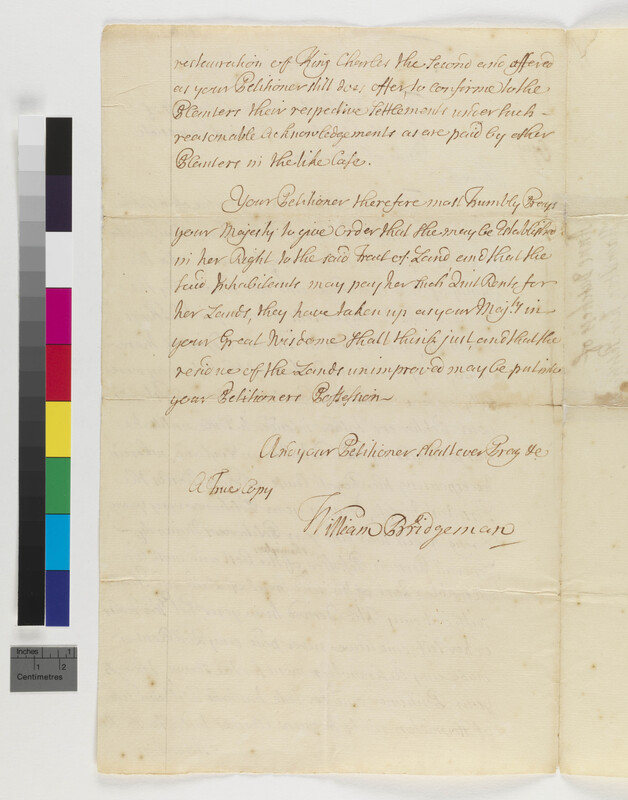 restauration off King Charles the Second and offered
as your Petitioner still does offer, to confirme to the
Planters their respective Settlements under such
reasonable Acknowledgements as are paid by other
Planters in the like Case.
Your Petitioner therefore most humbly Prays
your Majesty to give order that she may be Establish'd
in her Right to the said Tract of Land and that the
said Inhabitants may pay her such Quit Rents for
her Lands, they have taken up as your Maj.ty in
your Great Wisdome shall think just, and that the
residue off the Lands unimproved may be put into
your Petitioners Possession
And your Petitioner shall ever Pray &c
A True Copy
William Bridgeman
Inches 1
1 2
Centimetres